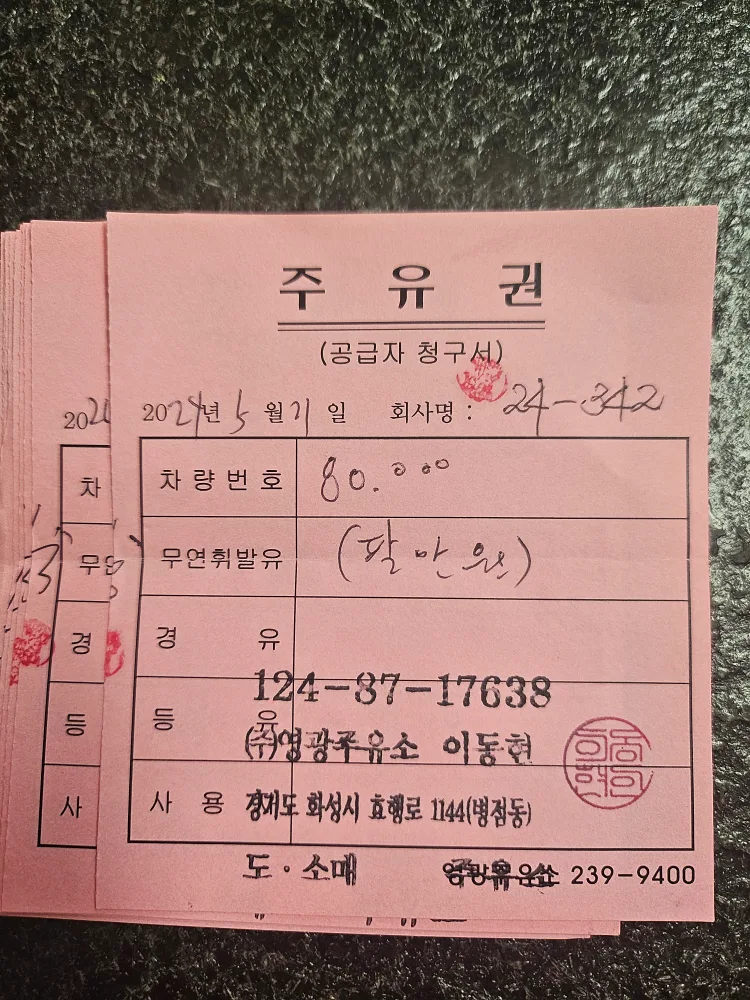 주유권
(공급자 청구서)
2024년 5월 21일 회사명 : 24-342
차량번호 80.000
무연휘발유 (팔만원)
경 유
124-87-17638
등 유
(주)영광주유소 이동현
사 용
경기도 화성시 효행로 1144(병점동)
도·소매 239-9400
202
차
무
경
등
사